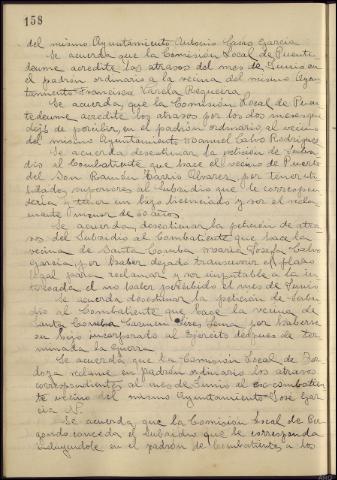 158
del mismo Ayuntamiento Antonio Castro García
Se acuerda que la Comisión Local de Puente
deume acredite los atrasos del mes de Junio en
el padrón ordinario a la vecina del mismo Ayun-
tamiento Francisca Varela Requeira.
Se acuerda, que la Comisión Local de Puen
tedeume, acredite los atrasos por los dos meses que
dejó de percibir, en el padrón ordinario, el vecino
del mismo Ayuntamiento Manuel Calvo Rodriguez
Se acuerda desestimar la petición de Subsi
dio al Combatiente que hace el vecino de Puerto
del Son Ramón Barrio Alvarez, por tener uti
lidades superiores al Subsidio que le correspon
deria y tener un hijo licenciado y ser el recla
mante menor de 60 años
Se acuerda, desestimar la petición de atra
sos del Subsidio al Combatiente que hace la
vecina de Santa Comba María Josefa Calvo
García, por haber dejado transcurrir el plazo
legal para reclamar y ser imputable a la in
teresada el no haber percibido el mes de Junio
Se acuerda desestimar la petición de Subsi
dio al Combatiente que hace la vecina de
Santa Comba Carmen Perez Lema por haberse
su hijo incorporado al Ejército despues de ter
minada la Guerra
Se acuerda que la Comisión Local de
reclame en padrón ordinario los atrasos
correspondientes al mes de Junio al ex-combatien
te vecino del mismo Ayuntamiento José Gar
cía
Se acuerda, que la Comisión Local de
conceda el Subsidio que le corresponda
incluyendole en el padrón de Combatiente a los